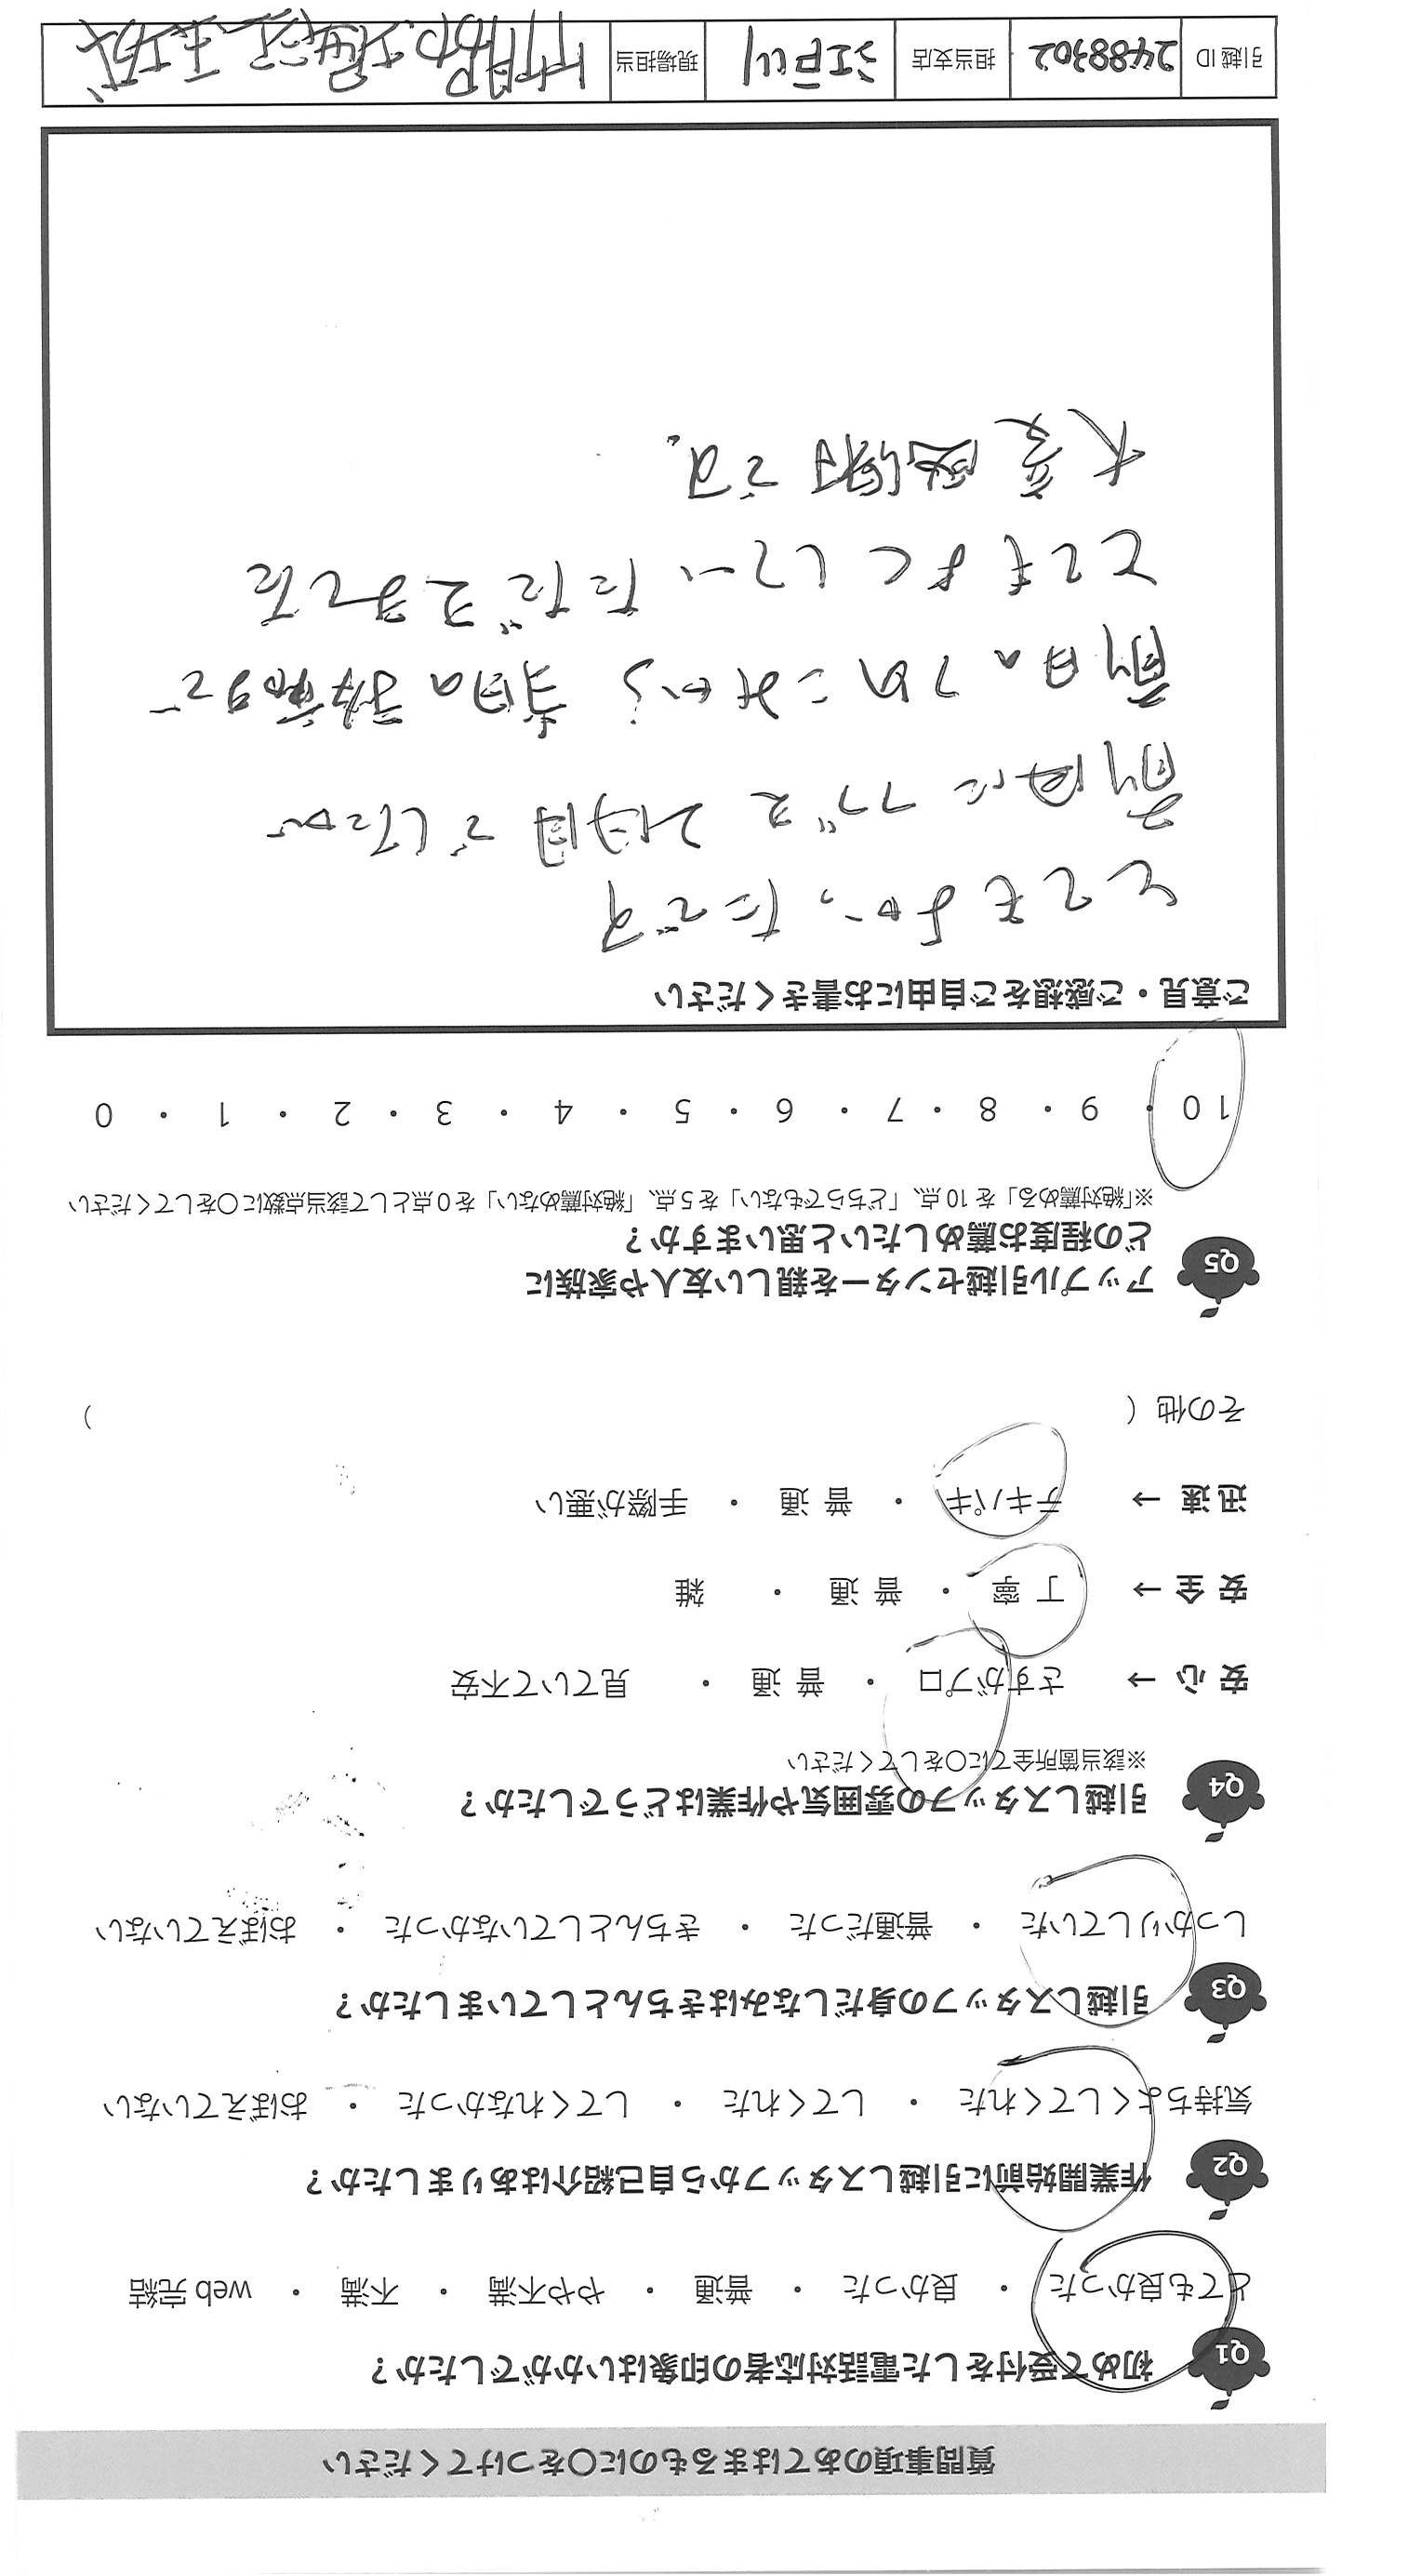 質問事項のあてはまるものに〇をつけてください
Q1 初めて受付をした電話対応者の印象はいかがでしたか？
とても良かった ・ 良かった ・ 普通 ・ やや不満 ・ 不満 ・ web 完結
Q2 作業開始前に引越しスタッフから自己紹介はありましたか？
気持ちよくしてくれた ・ してくれた ・ してくれなかった ・ おぼえていない
Q3 引越しスタッフの身だしなみはきちんとしていましたか？
しっかりしていた ・ 普通だった ・ きちんとしていなかった ・ おぼえていない
Q4 引越しスタッフの雰囲気や作業はどうでしたか？
※該当箇所全てに〇をしてください
安心 → さすがプロ ・ 普通 ・ 見ていて不安
安全 → 丁寧 ・ 普通 ・ 雑
迅速 → テキパキ ・ 普通 ・ 手際が悪い
その他 （ ）
Q5 アップル引越センターを親しい友人や家族に
どの程度お薦めしたいと思いますか？
※「絶対薦める」を 10 点、「どちらでもない」を 5 点、「絶対薦めない」を 0 点として該当点数に〇をしてください
10 ・ 9 ・ 8 ・ 7 ・ 6 ・ 5 ・ 4 ・ 3 ・ 2 ・ 1 ・ 0
ご意見・ご感想をご自由にお書きください
とてもよかったです
前回につづき2回目でしたが
前日の
とてもよくしていただきました
大変感謝です。
引越 ID 2488302 担当支店 江戸川 現場担当